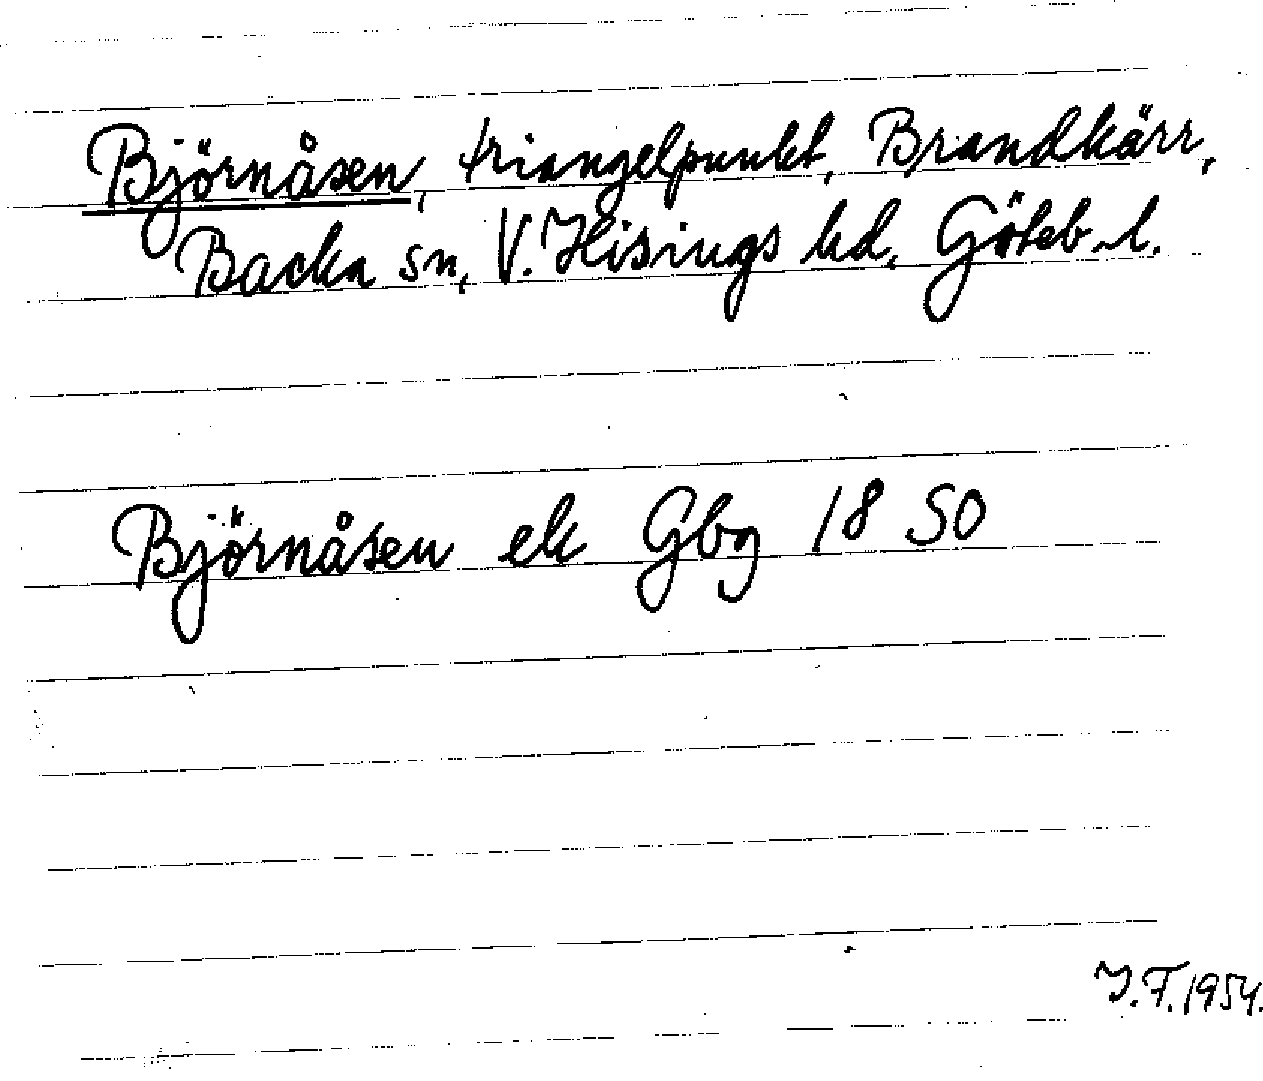 Björnåsen, triangelpunkt, Brandkärr,
Backa sn, V. Hisings hd, Göteb. l.
Björnåsen ek Gbg 18 SO
J.F. 1954.